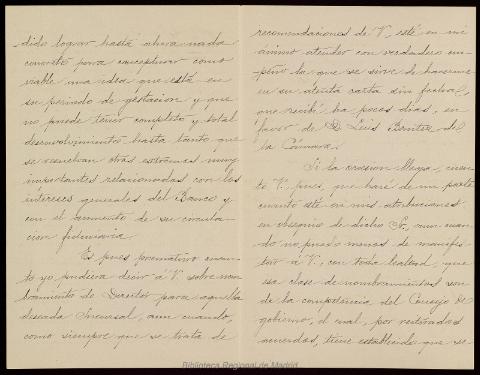 dido lograr hasta ahora nada
concreto para conceptuar como
viable una idea que está en
su periodo de gestacion y que
no puede tener completo y total
desenvolvimiento hasta tanto que
se resuelvan otros extremos muy
importantes relacionados con los
intereses generales del Banco y
con el aumento de su circula-
cion fiduciaria.
Es pues prematuro cuan-
to yo pudiera decir á V. sobre nom-
bramiento de para aquella
deseada Sucursal, aun cuando,
como siempre que se trata de
recomendaciones de V. esté en mi
ánimo atender con verdadero em-
peño la que se sirve de hacerme
en su atenta carta sin fecha,
que recibí ha pocos dias, en
favor de D. Luis Benitez de
la Cámara.
Si la ocasion llega, cuen-
te V. pues, que haré de mi parte
cuanto esté en mis atribuciones
en obsequio de dicho Sr. aun cuan-
do no puedo menos de manifes-
tar á V., con toda lealtad, que
esa clase de nombramientos son
de la competencia del Consejo de
gobierno, el cual, por reiterados
acuerdos, tiene establecido que se
Biblioteca Regional de Madrid